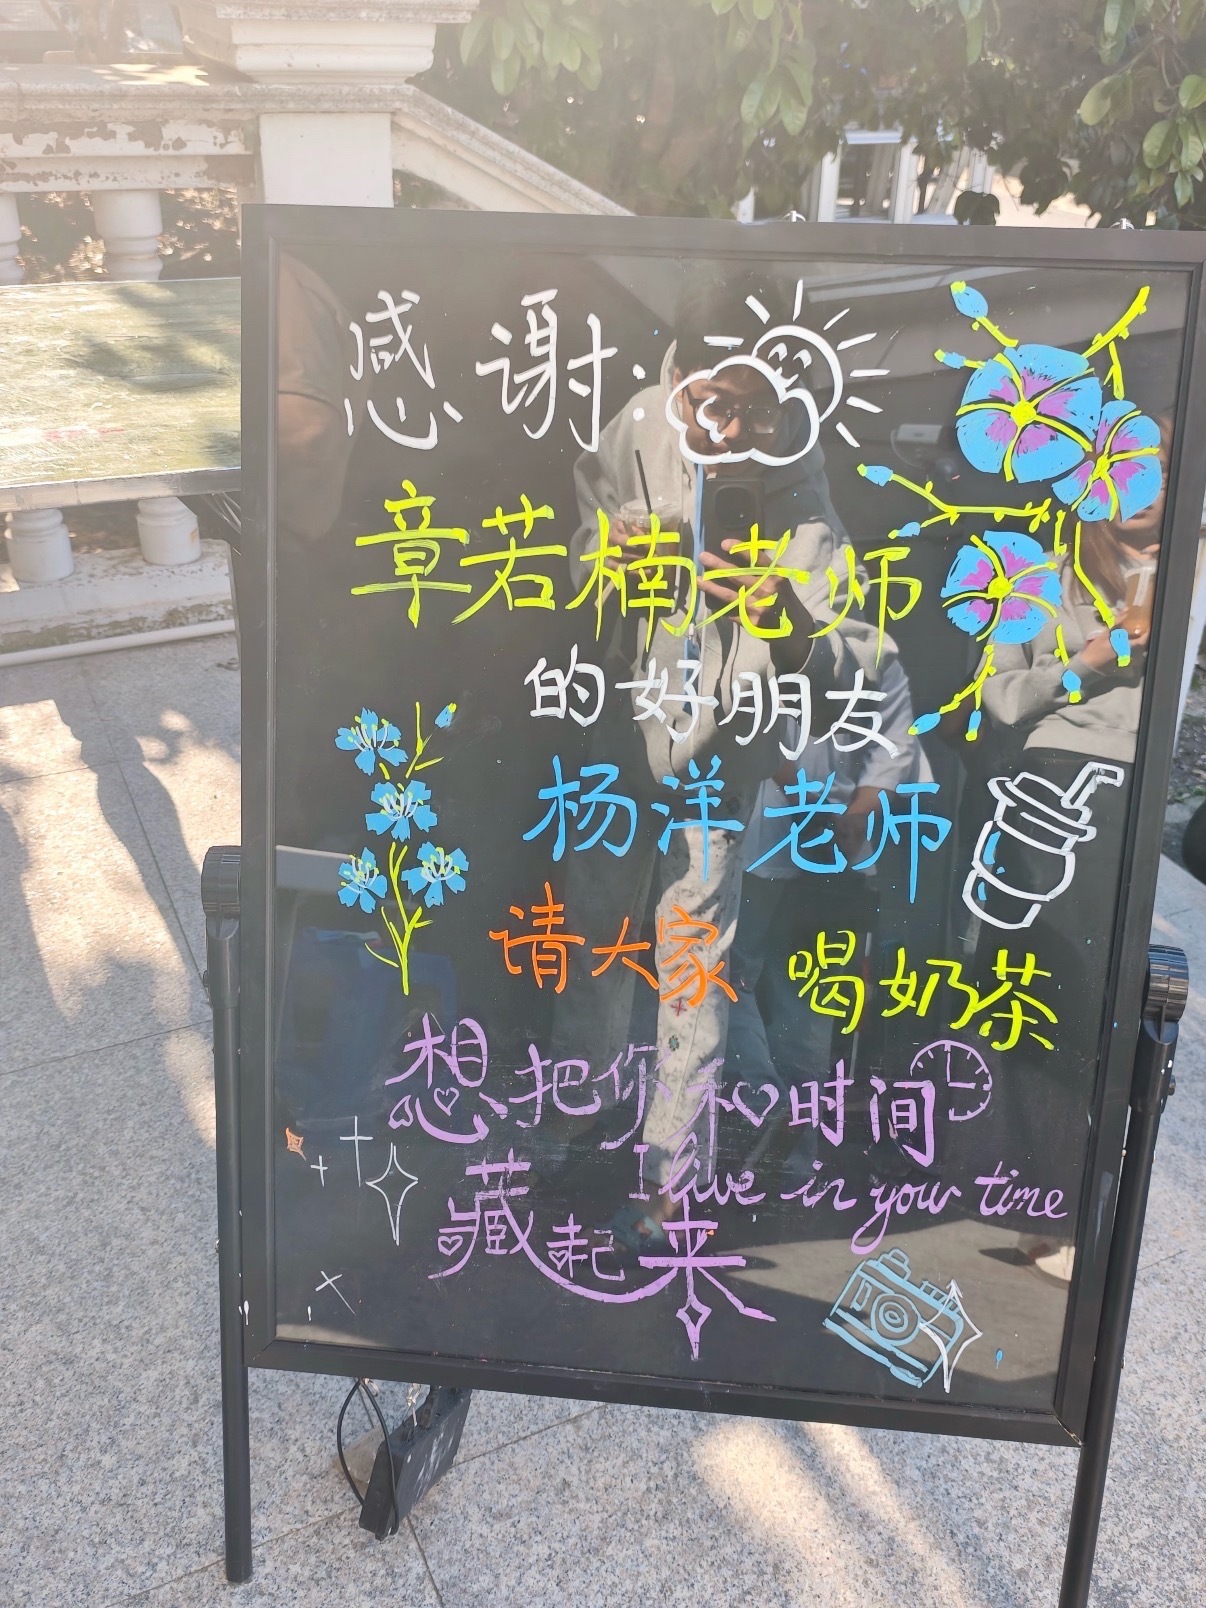 感谢:
章若楠老师
的好朋友
杨洋老师
请大家 喝奶茶
想把你和时间
I live in your time
藏起来